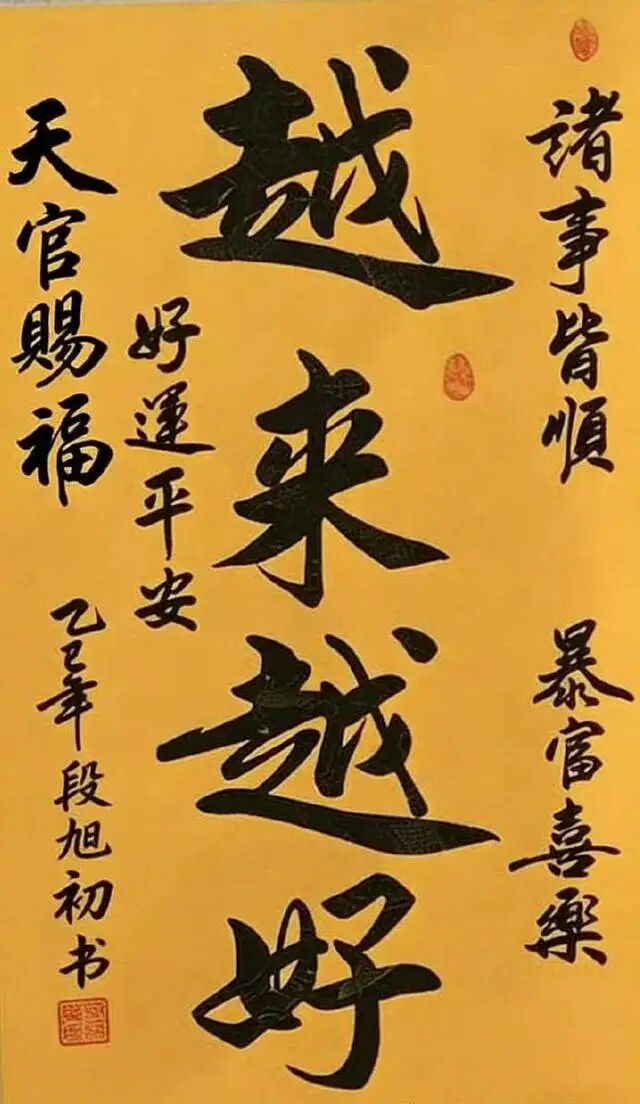 諸事皆順
暴富喜樂
越来越好
好運平安
天官賜福
乙巳年段旭初书